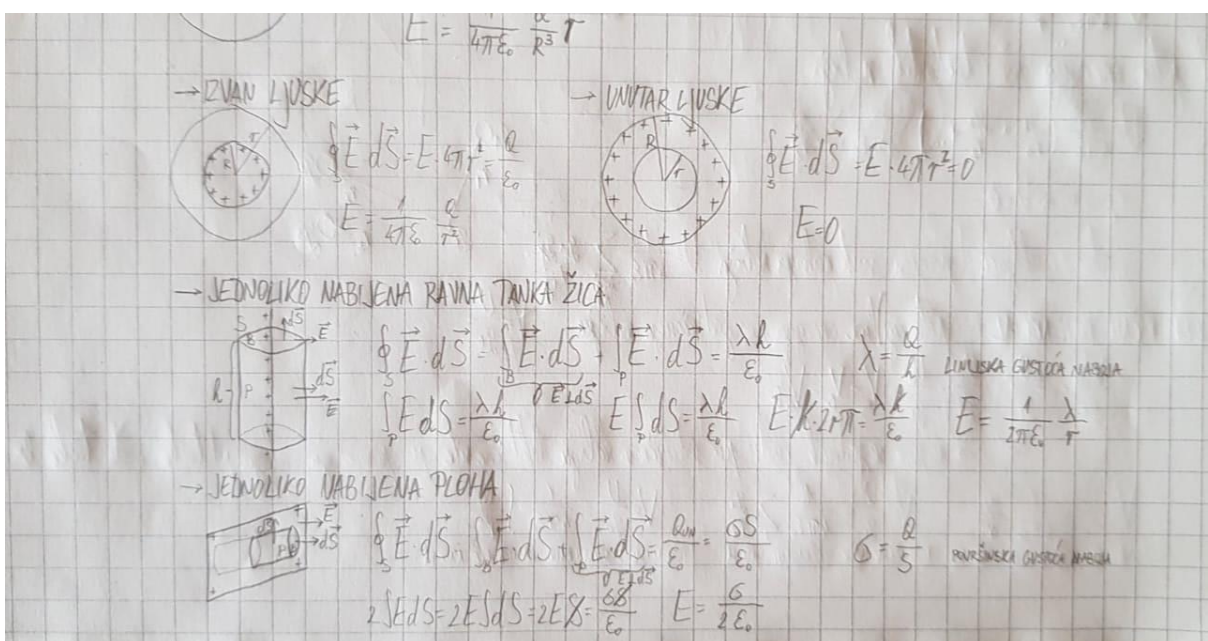 E = 1/4πε₀ Q/R³ r
→ IZVAN LJUSKE
R r
∮_S E⃗ dS⃗ = E·4πr² = Q/ε₀
E = 1/4πε₀ Q/r²
→ UNUTAR LJUSKE
R r
∮_S E⃗·dS⃗ = E·4πr² = 0
E=0
→ JEDNOLIKO NABIJENA RAVNA TANKA ŽICA
S B dS⃗ E⃗
h P dS⃗ E⃗
∮_S E⃗·dS⃗ = ∫_B E⃗·dS⃗ + ∫_P E⃗·dS⃗ = λh/ε₀ λ = Q/h LINIJSKA GUSTOĆA NABOJA
0 E⃗⊥dS⃗
∫_P E dS = λh/ε₀ E∫_P dS = λh/ε₀ E·h·2rπ = λh/ε₀ E = 1/2πε₀ λ/r
→ JEDNOLIKO NABIJENA PLOHA
dS⃗ P B E⃗ dS⃗
∮_S E⃗·dS⃗ = ∫_B E⃗·dS⃗ + ∫_P E⃗·dS⃗ = Q_UN/ε₀ = σS/ε₀ σ = Q/S POVRŠINSKA GUSTOĆA NABOJA
0 E⃗⊥dS⃗
2∫EdS = 2E∫dS = 2ES = σS/ε₀ E = σ/2ε₀